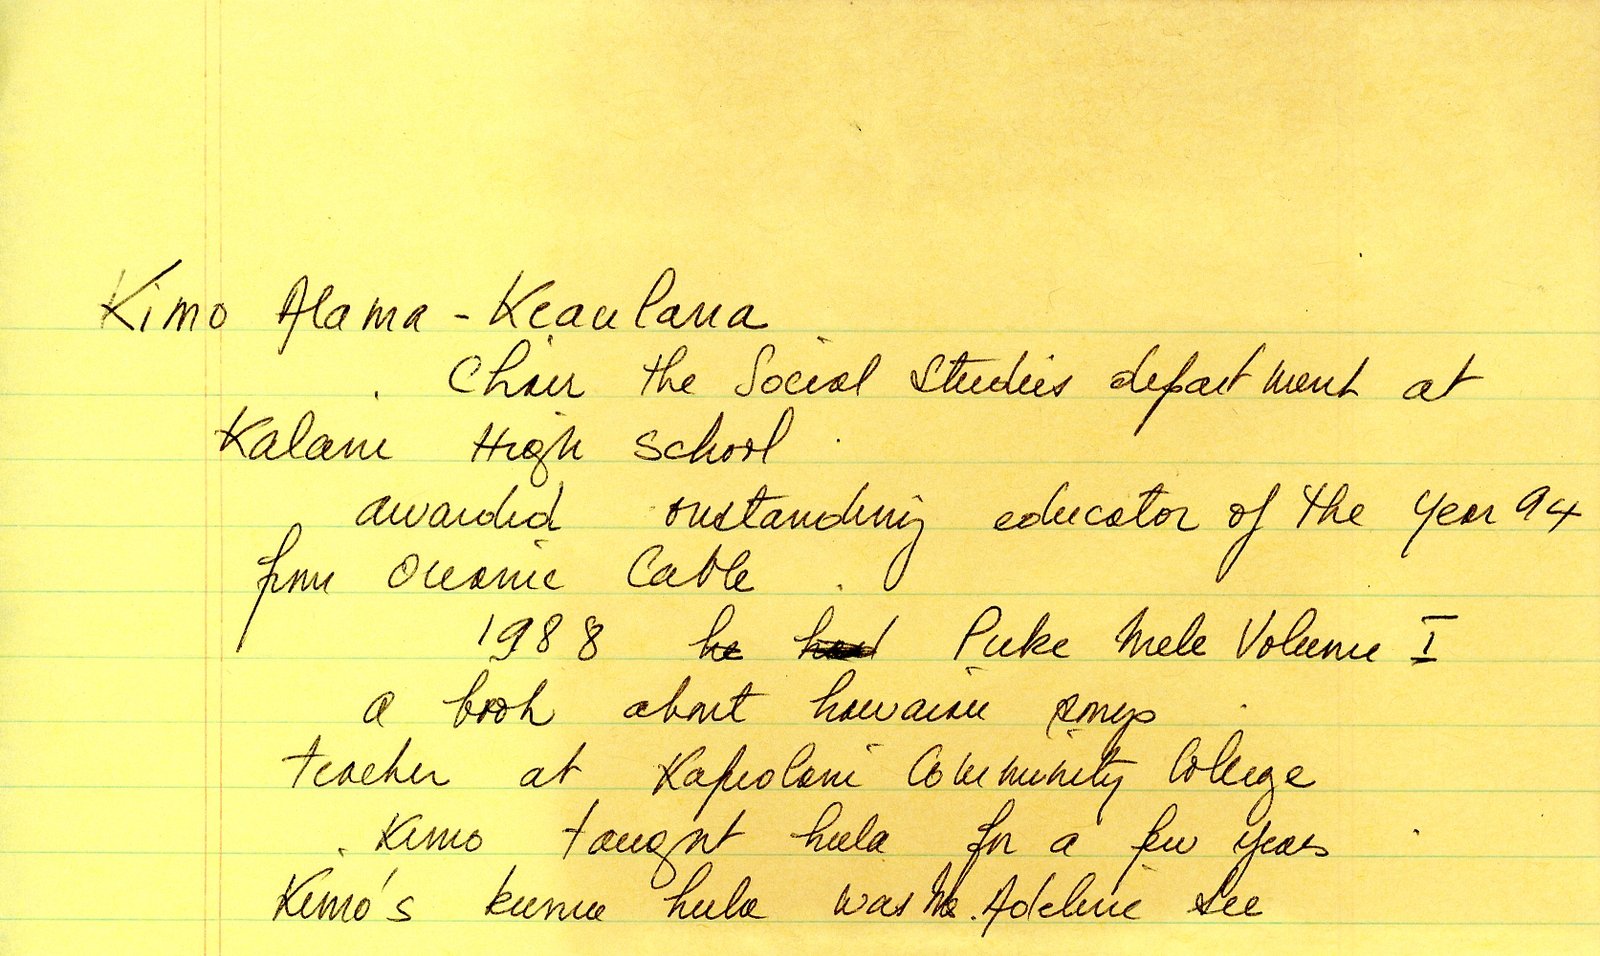 Kimo Alama - Keaulana
Chair the Social Studies department at
Kalani High School
awarded oustanding educator of the year 94
from Oceanic Cable
1988 he had Puke Mele Volume I
a book about hawaiian songs
teacher at Kapiolani Community College
Kimo taught hula for a few years
Kimo's kumu hula was Ms. Adeline Lee